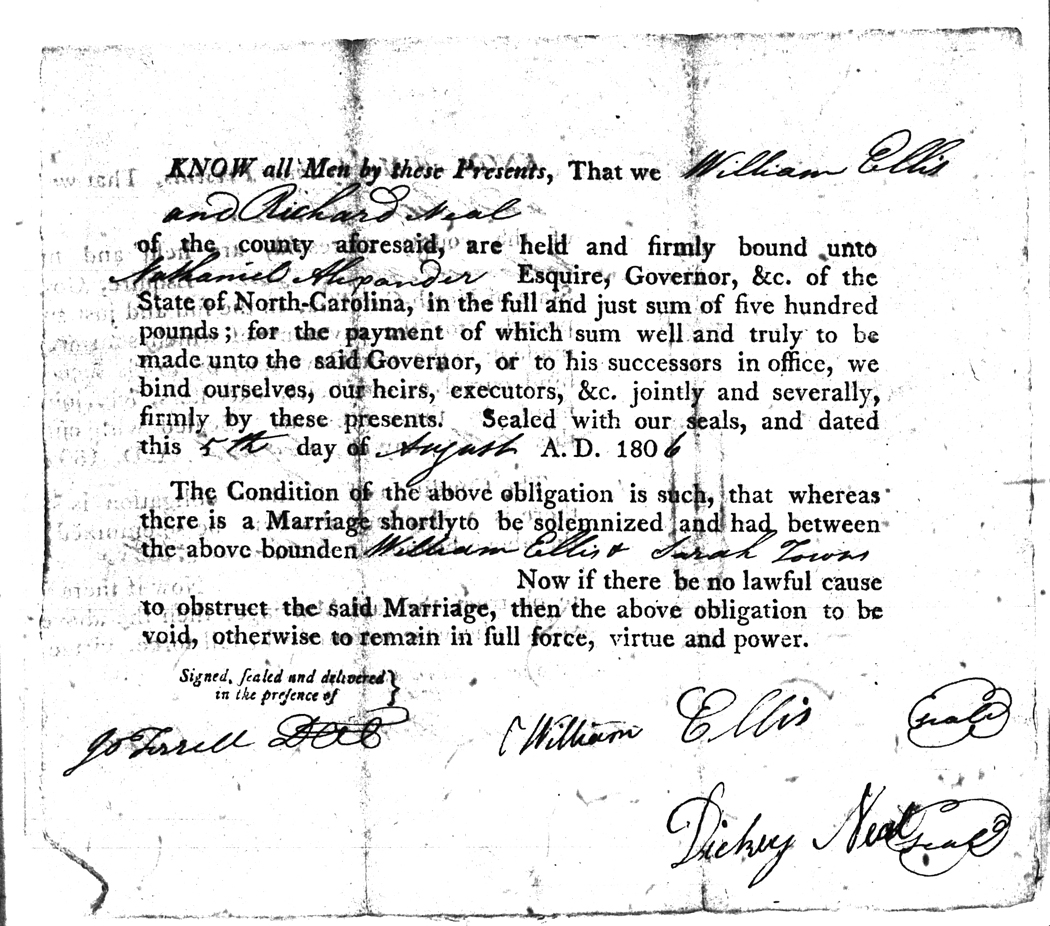 KNOW all Men by these Presents, That we William Ellis
and Richard Neal
of the county aforesaid, are held and firmly bound unto
Nathaniel Alexander Esquire, Governor, &c. of the
State of North-Carolina, in the full and just sum of five hundred
pounds; for the payment of which sum well and truly to be
made unto the said Governor, or to his successors in office, we
bind ourselves, our heirs, executors, &c. jointly and severally,
firmly by these presents. Sealed with our seals, and dated
this 5th day of August A. D. 1806
The Condition of the above obligation is such, that whereas
there is a Marriage shortlyto be solemnized and had between
the above bounden William Ellis & Sarah Towns
Now if there be no lawful cause
to obstruct the said Marriage, then the above obligation to be
void, otherwise to remain in full force, virtue and power.
Signed, ſealed and delivered }
in the preſence of
Jo Terrell William Ellis seal
Dickey Neal seal